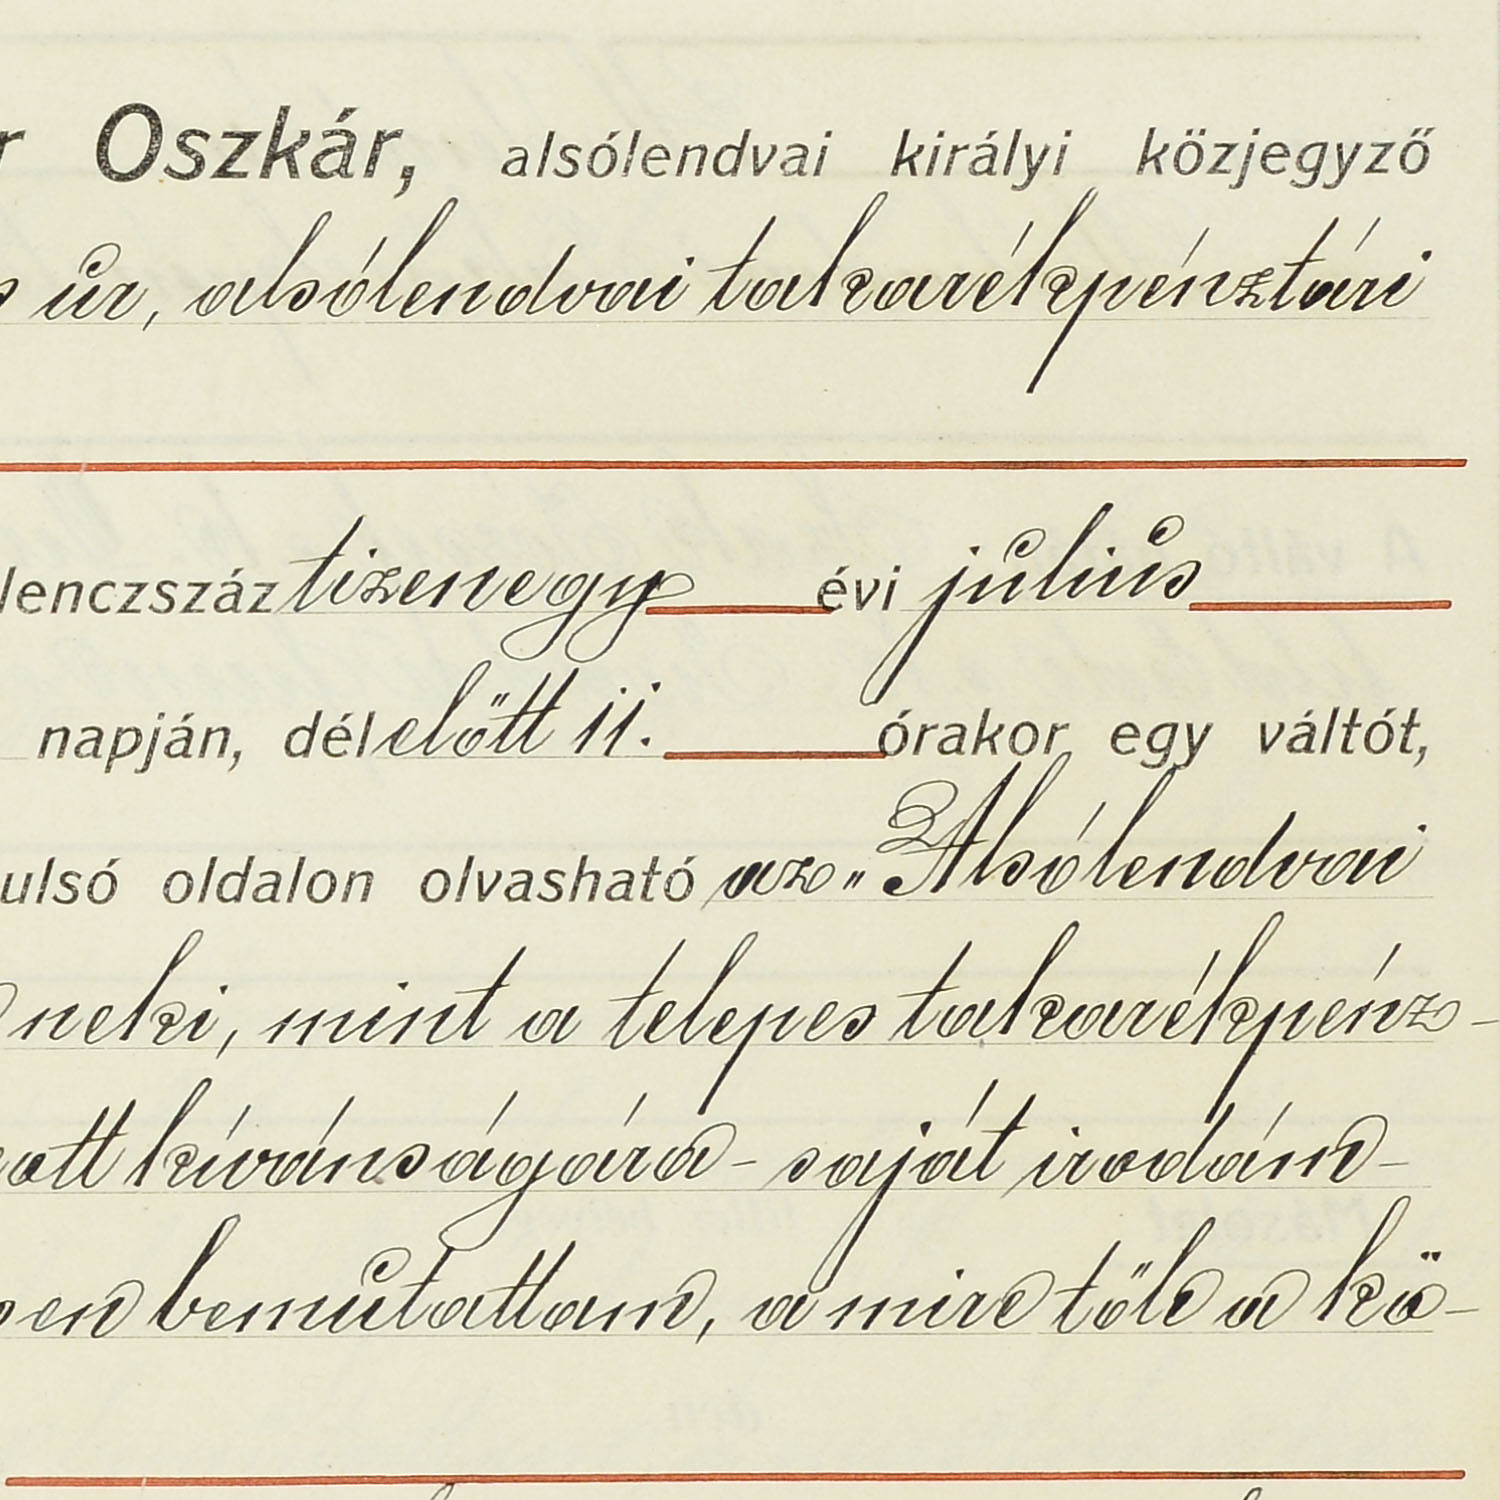 Oszkár, alsólendvai királyi közjegyző
úr, alsólendvai takarékpénztári
lenczszáz tizenegy évi július
napján, délelőtt 11. órakor egy váltót,
ulsó oldalon olvasható az „Alsólendvai
neki, mint a telepes takarékpénz-
att kívánságára - saját irodám-
en bemutattam, a mire tőle a kö-